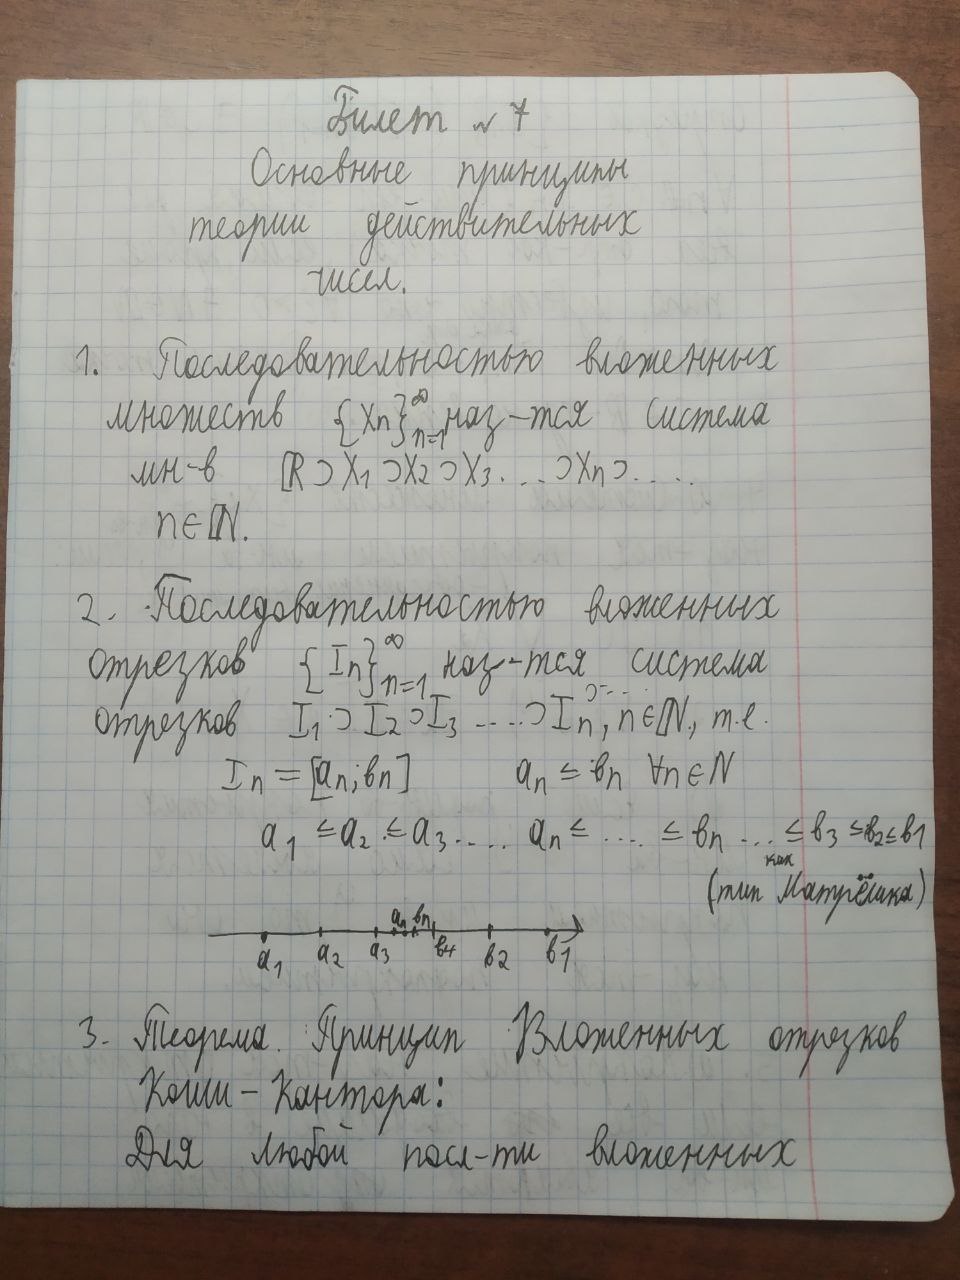 Билет № 7
Основные принципы
теории действительных
чисел.
1. Последовательностью вложенных
множеств {Xn}∞n=1 наз-тся система
мн-в ℝ⊃X1⊃X2⊃X3....⊃Xn⊃.....
n∈ℕ.
2. Последовательностью вложенных
отрезков {In}∞n=1 наз-тся система
отрезков I1⊃I2⊃I3 ....⊃In⊃..., n∈ℕ, т.е.
In = [an;bn] an ≤ bn ∀n∈N
a1 ≤a2 ≤a3.... an ≤ .... ≤ bn ... ≤b3 ≤b2≤b1
(тип как Матрёшка)
a1 a2 a3 an bn b4 b2 b1
3. Теорема. Принцип Вложенных отрезков
Коши – Кантора:
Для любой посл-ти вложенных